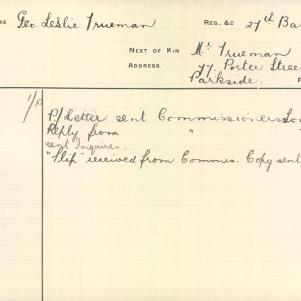 RE Geo. Leslie Trueman REG. &c 27th Ba
NEXT OF KIN Mr Trueman
ADDRESS 77 Porter Stree
Parkside.
P/Letter sent Commissioners Lon
Reply from "
sent Inquires.
"Slip" received from Commrs. Copy sent